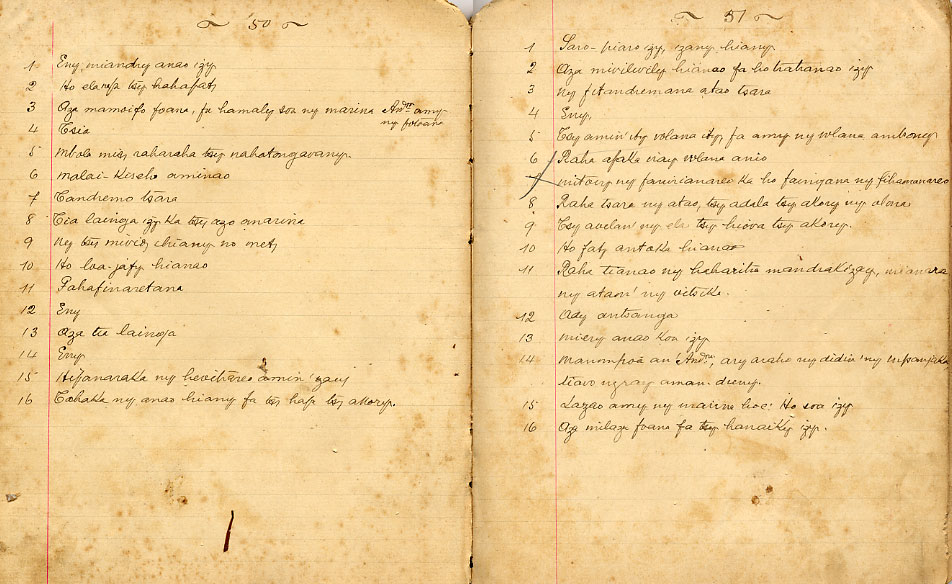 ~ 50 ~
1 Eny, miandry anao izy
2 Ho elaela tsy hahafaty
3 Aza mamoifo foana, fa hamaly soa ny marina Andrn amy
ny fotoana
4 Tsia
5 Mbola misy raharaha tsy nahatongavany.
6 Malai-kiseho aminao
7 Tandremo tsara
8 Tia lainga izy ka tsy azo anarina
9 Ny tsy mividy hiany no mety
10 Ho loa-jaty hianao
11 Fahafinaretana
12 Eny
13 Aza tia lainga
14 Eny
15 Hijanaraka ny hevitrareo amin' izany
16 Tohaka ny anao hiany fa tsy haja tsy akory.
~ 51 ~
1 Saro-piaro izy, izany hiany
2 Aza mivilivily hianao fa ho tratranao izy
3 Ny fitandremana atao tsara
4 Eny,
5 Tsy amin' ity volana ity, fa amy ny volana ambony
6 Raha afaka iray volana anio
7 mitovy ny fanirianareo ka ho faingana ny fihamanareo
8 Raha tsara ny atao, tsy adala tsy akory ny olona
9 Tsy avelan' ny ela tsy hiova tsy akory.
10 Ho faty antoka hianao
11 Raha tianao ny haharitra mandrakizay, mianara
ny ataon' ny vitsika.
12 Ady antsanga
13 miery anao koa izy
14 Manompoa an' Andrn, ary araho ny didin' ny mpanjaka
tiavo ny ray aman-dreny.
15 Lazao amy ny marina hoe: Ho soa izy
16 Aza milaza foana fa tsy hanaiky izy.